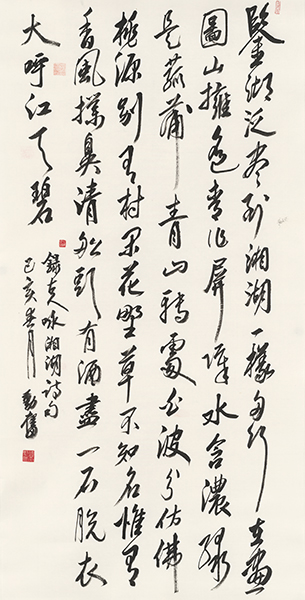 鑒湖泛盡到湘湖一行在畫
圖山擁色青作屏障水含濃綠
是菰蒲青山轉處白波分仿佛
桃源別有村花野草不知名惟有
香風撲鼻清船頭有酒盡一石脫衣
大呼江天碧
錄湘湖詩句
己亥春月